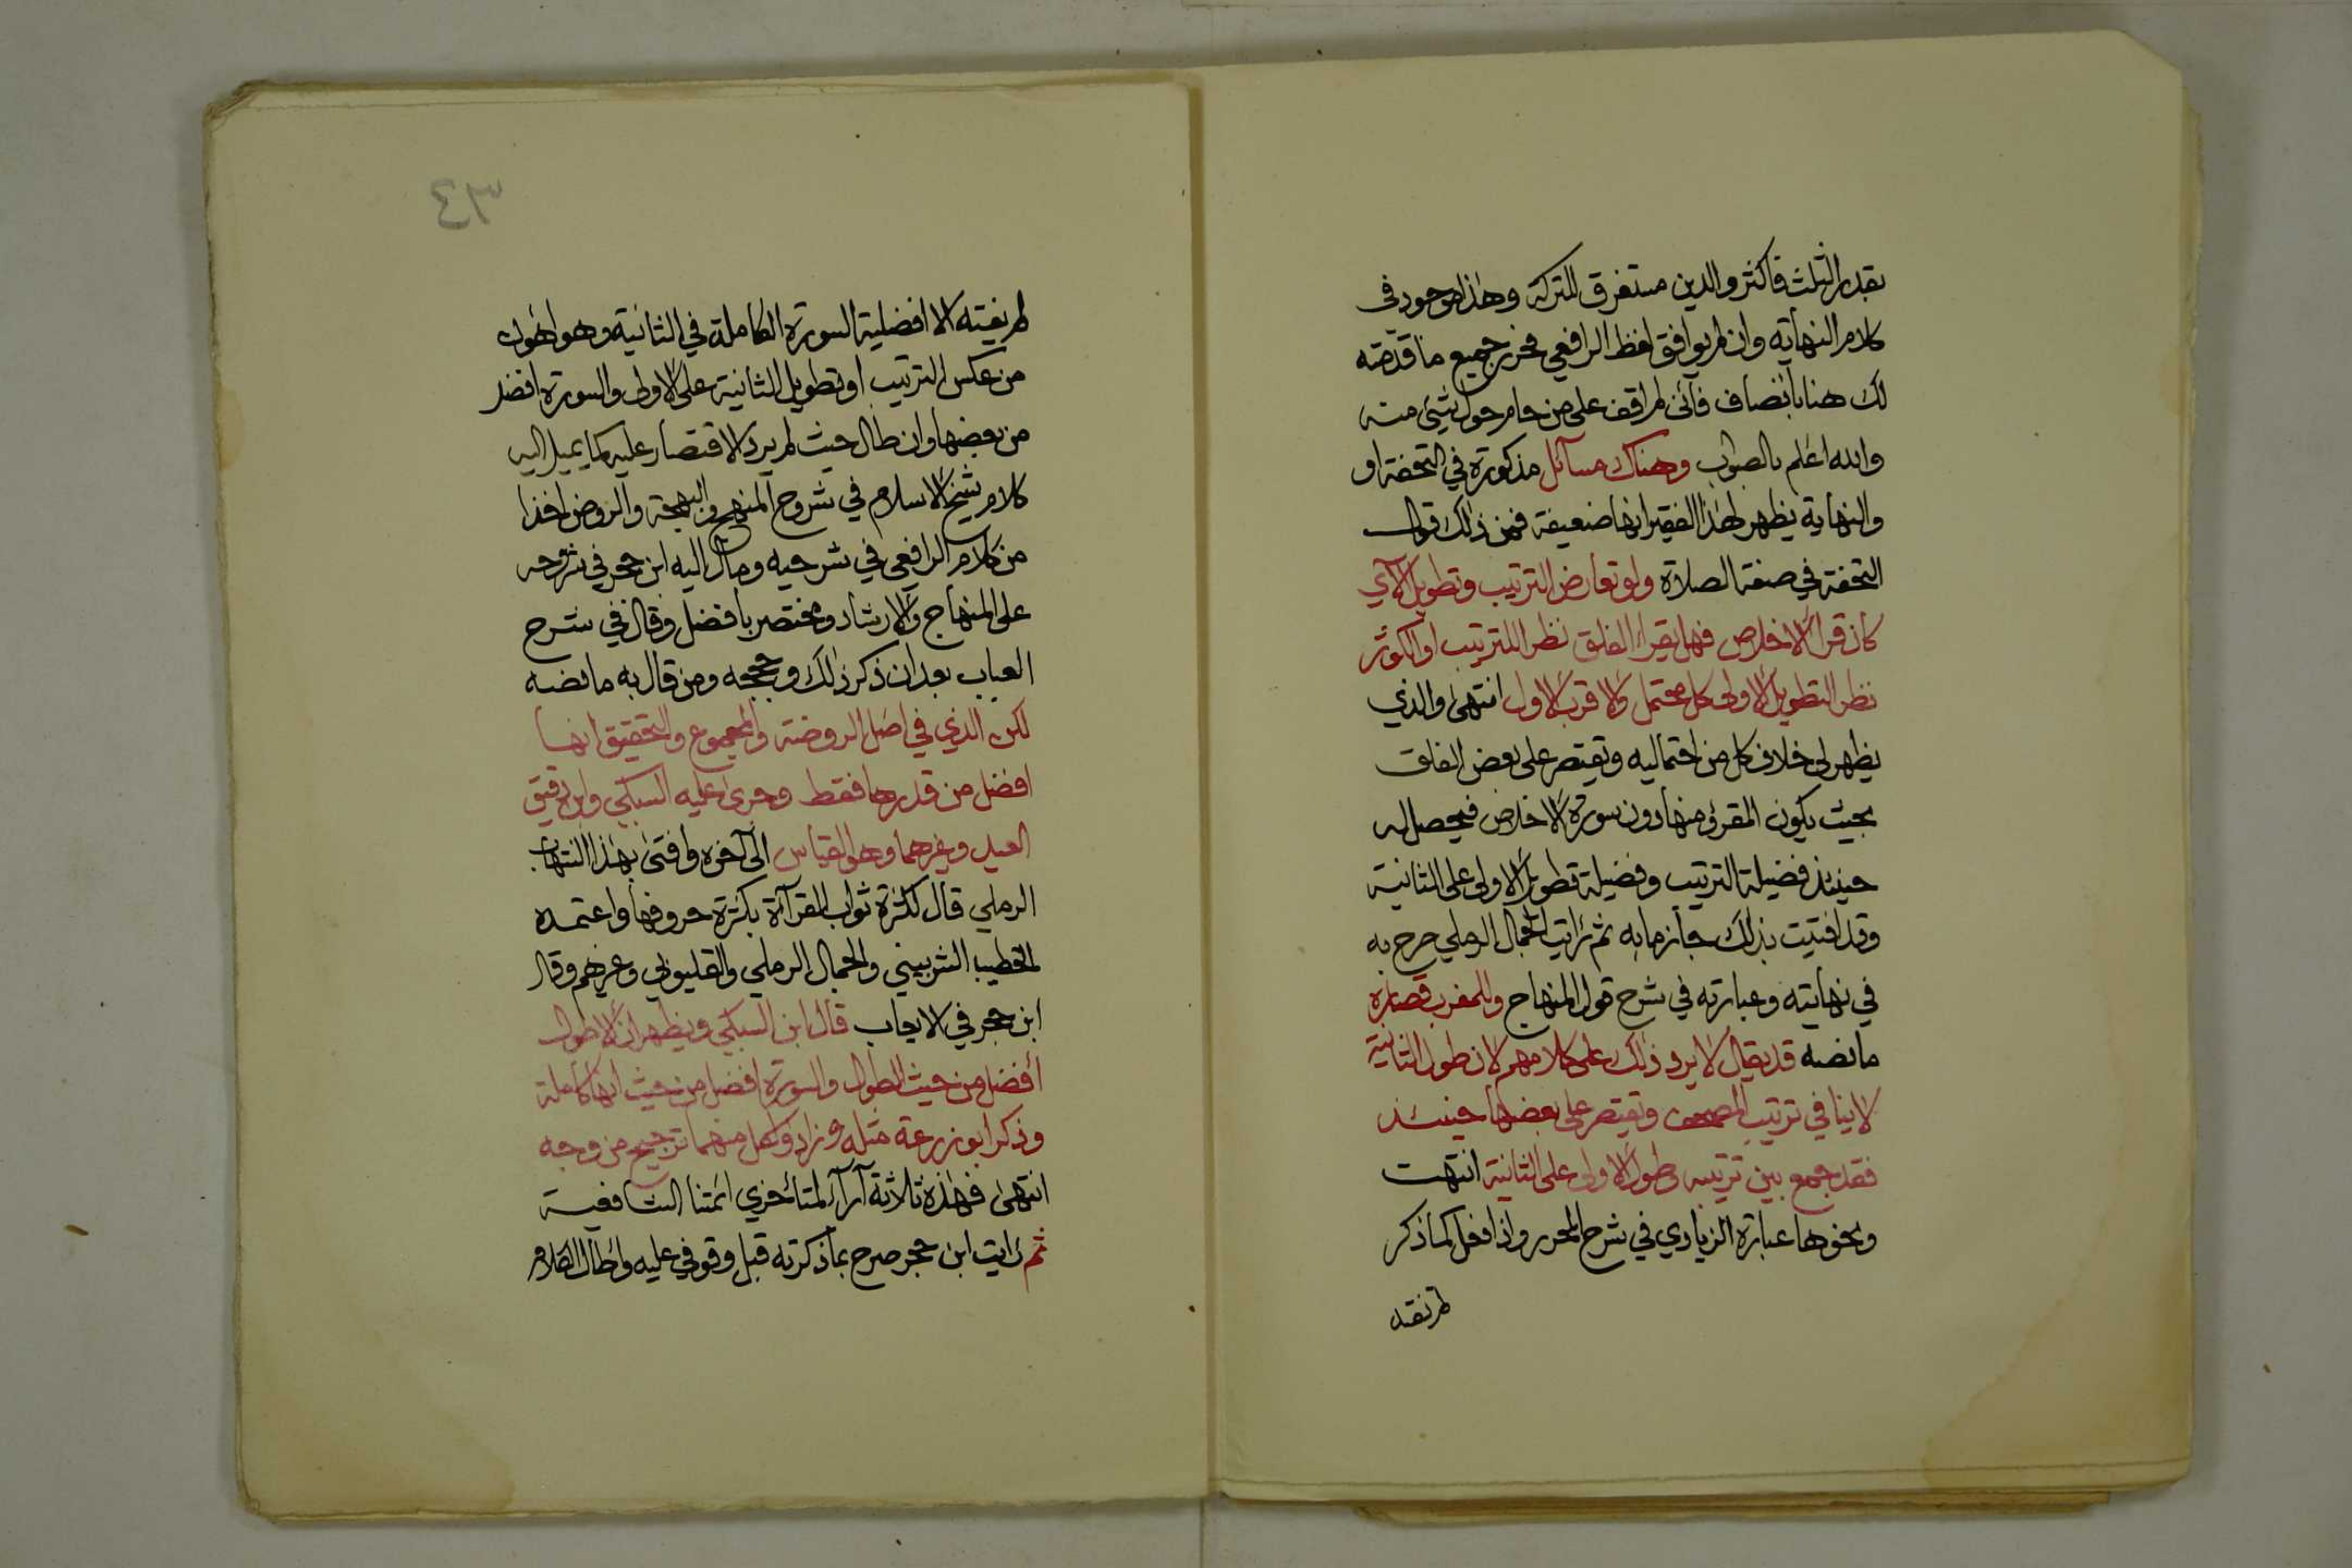 بقدر الثلث فاكثر والدين مستغرق للتركة وهذا موجود في
كلام النهاية وان لم يوافق لفظ الرافعي فحرر جميع ما قدمته
لك هنا بانصاف فانى لم اقف على من حام حول شيئ منه
والله اعلم بالصواب وهناك مسآئل مذكورة في التحفة او
والنهاية يظهر لهذا الفقير انها ضعيفة فمن ذلك قول
التحفة في صفة الصلاة ولو تعارض الترتيب وتطويل الآي
كان قرأ الاخلاص فهل يقرأ الفلق نظرا للترتيب او الكوثر
نظر التطويل الاولى كل محتمل والاقرب الاول انتهى والذي
يظهر لى خلاف كل من احتماليه وتقتصر على بعض الفلق
بحيث يكون المقرؤ منها دون سورة الاخلاص فيحصل له
حينئذ فضيلة الترتيب وفضيلة تطويل الاولى على الثانية
وقد افتيت بذلك جازما به ثم رأيت الجمال الرملي صرح به
في نهايته وعبارته في شرح قول المنهاج وللمغرب قصاره
ما نصه قد يقال لا يرد ذلك على كلامهم لان طول الثانية
لا ينافي ترتيب المصحف وتقتصر على بعضها حينئذ
فقد جمع بين ترتيبه وطول الاولى على الثانية انتهت
ونحوها عبارة الزيادي في شرح المحرر واذا فعل كما ذكر
لم تفته
٤٣
لم يفته الا افضلية السورة الكاملة في الثانية وهو اهون
من عكس الترتيب او تطويل الثانية على الاولى والسورة افضل
من بعضها وان طال حيث لم يرد الاقتصار عليه كما يميل اليه
كلام شيخ الاسلام في شروح المنهج والبهجة والروض اخذا
من كلام الرافعي في شرحيه ومال اليه ابن حجر في شروحه
على المنهاج والارشاد ومختصر بافضل وقال في شرح
العباب بعد ان ذكر ذلك وحججه ومن قال به ما نصه
لكن الذي في اصل الروضة والمجموع والتحقيق انها
افضل من قدرها فقط وجرى عليه السبكي وابن دقيق
العيد وغيرهما وهو القياس الى آخره وافتى بهذا الشهاب
الرملي قال لكثرة ثواب القرآءة بكثرة حروفها واعتمده
الخطيب الشربيني والجمال الرملي والقليوبي وغيرهم وقال
ابن حجر في الايعاب قال ابن السبكي ويظهر ان الاطول
أفضل من حيث الطول والسورة افضل من حيث انها كاملة
وذكر ابو زرعة مثله وزاد ولكل منهما ترجيح من وجه
انتهى فهذه ثلاثة آرآء لمتأخري ائمتنا الشافعية
ثم رأيت ابن حجر صرح بما ذكرته قبل وقوفي عليه واطال الكلام